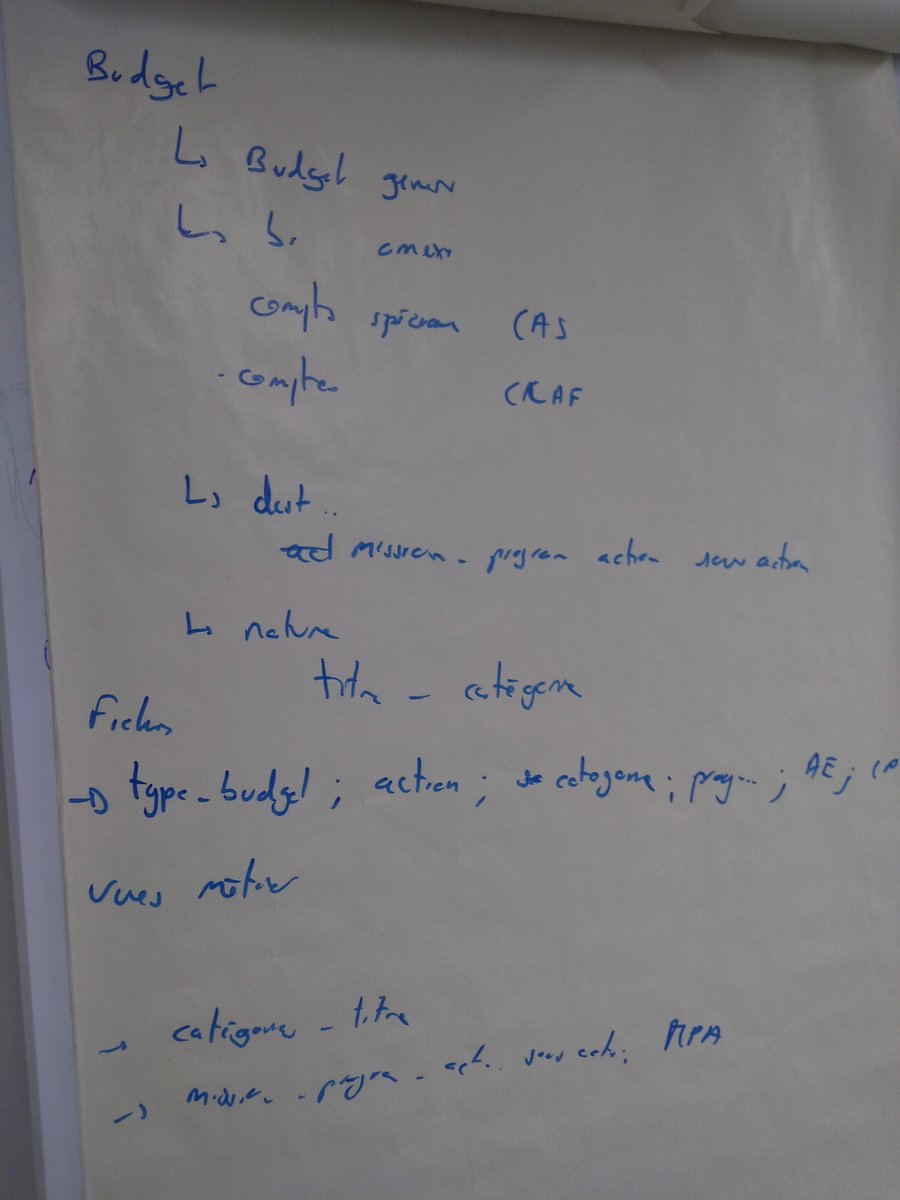 Budget
↳ Budget gener
↳ b. annexe
compts spéciaux CAS
- comptes
↳ dest..
mission - program action sous action
↳ nature
titre - catégorie
Fichier
→ type-budget ; action ; catégorie ; prog... ; AE ; CP
Vues métier
→ catégorie - titre
→ mission - program - act.. sous acti. MPA